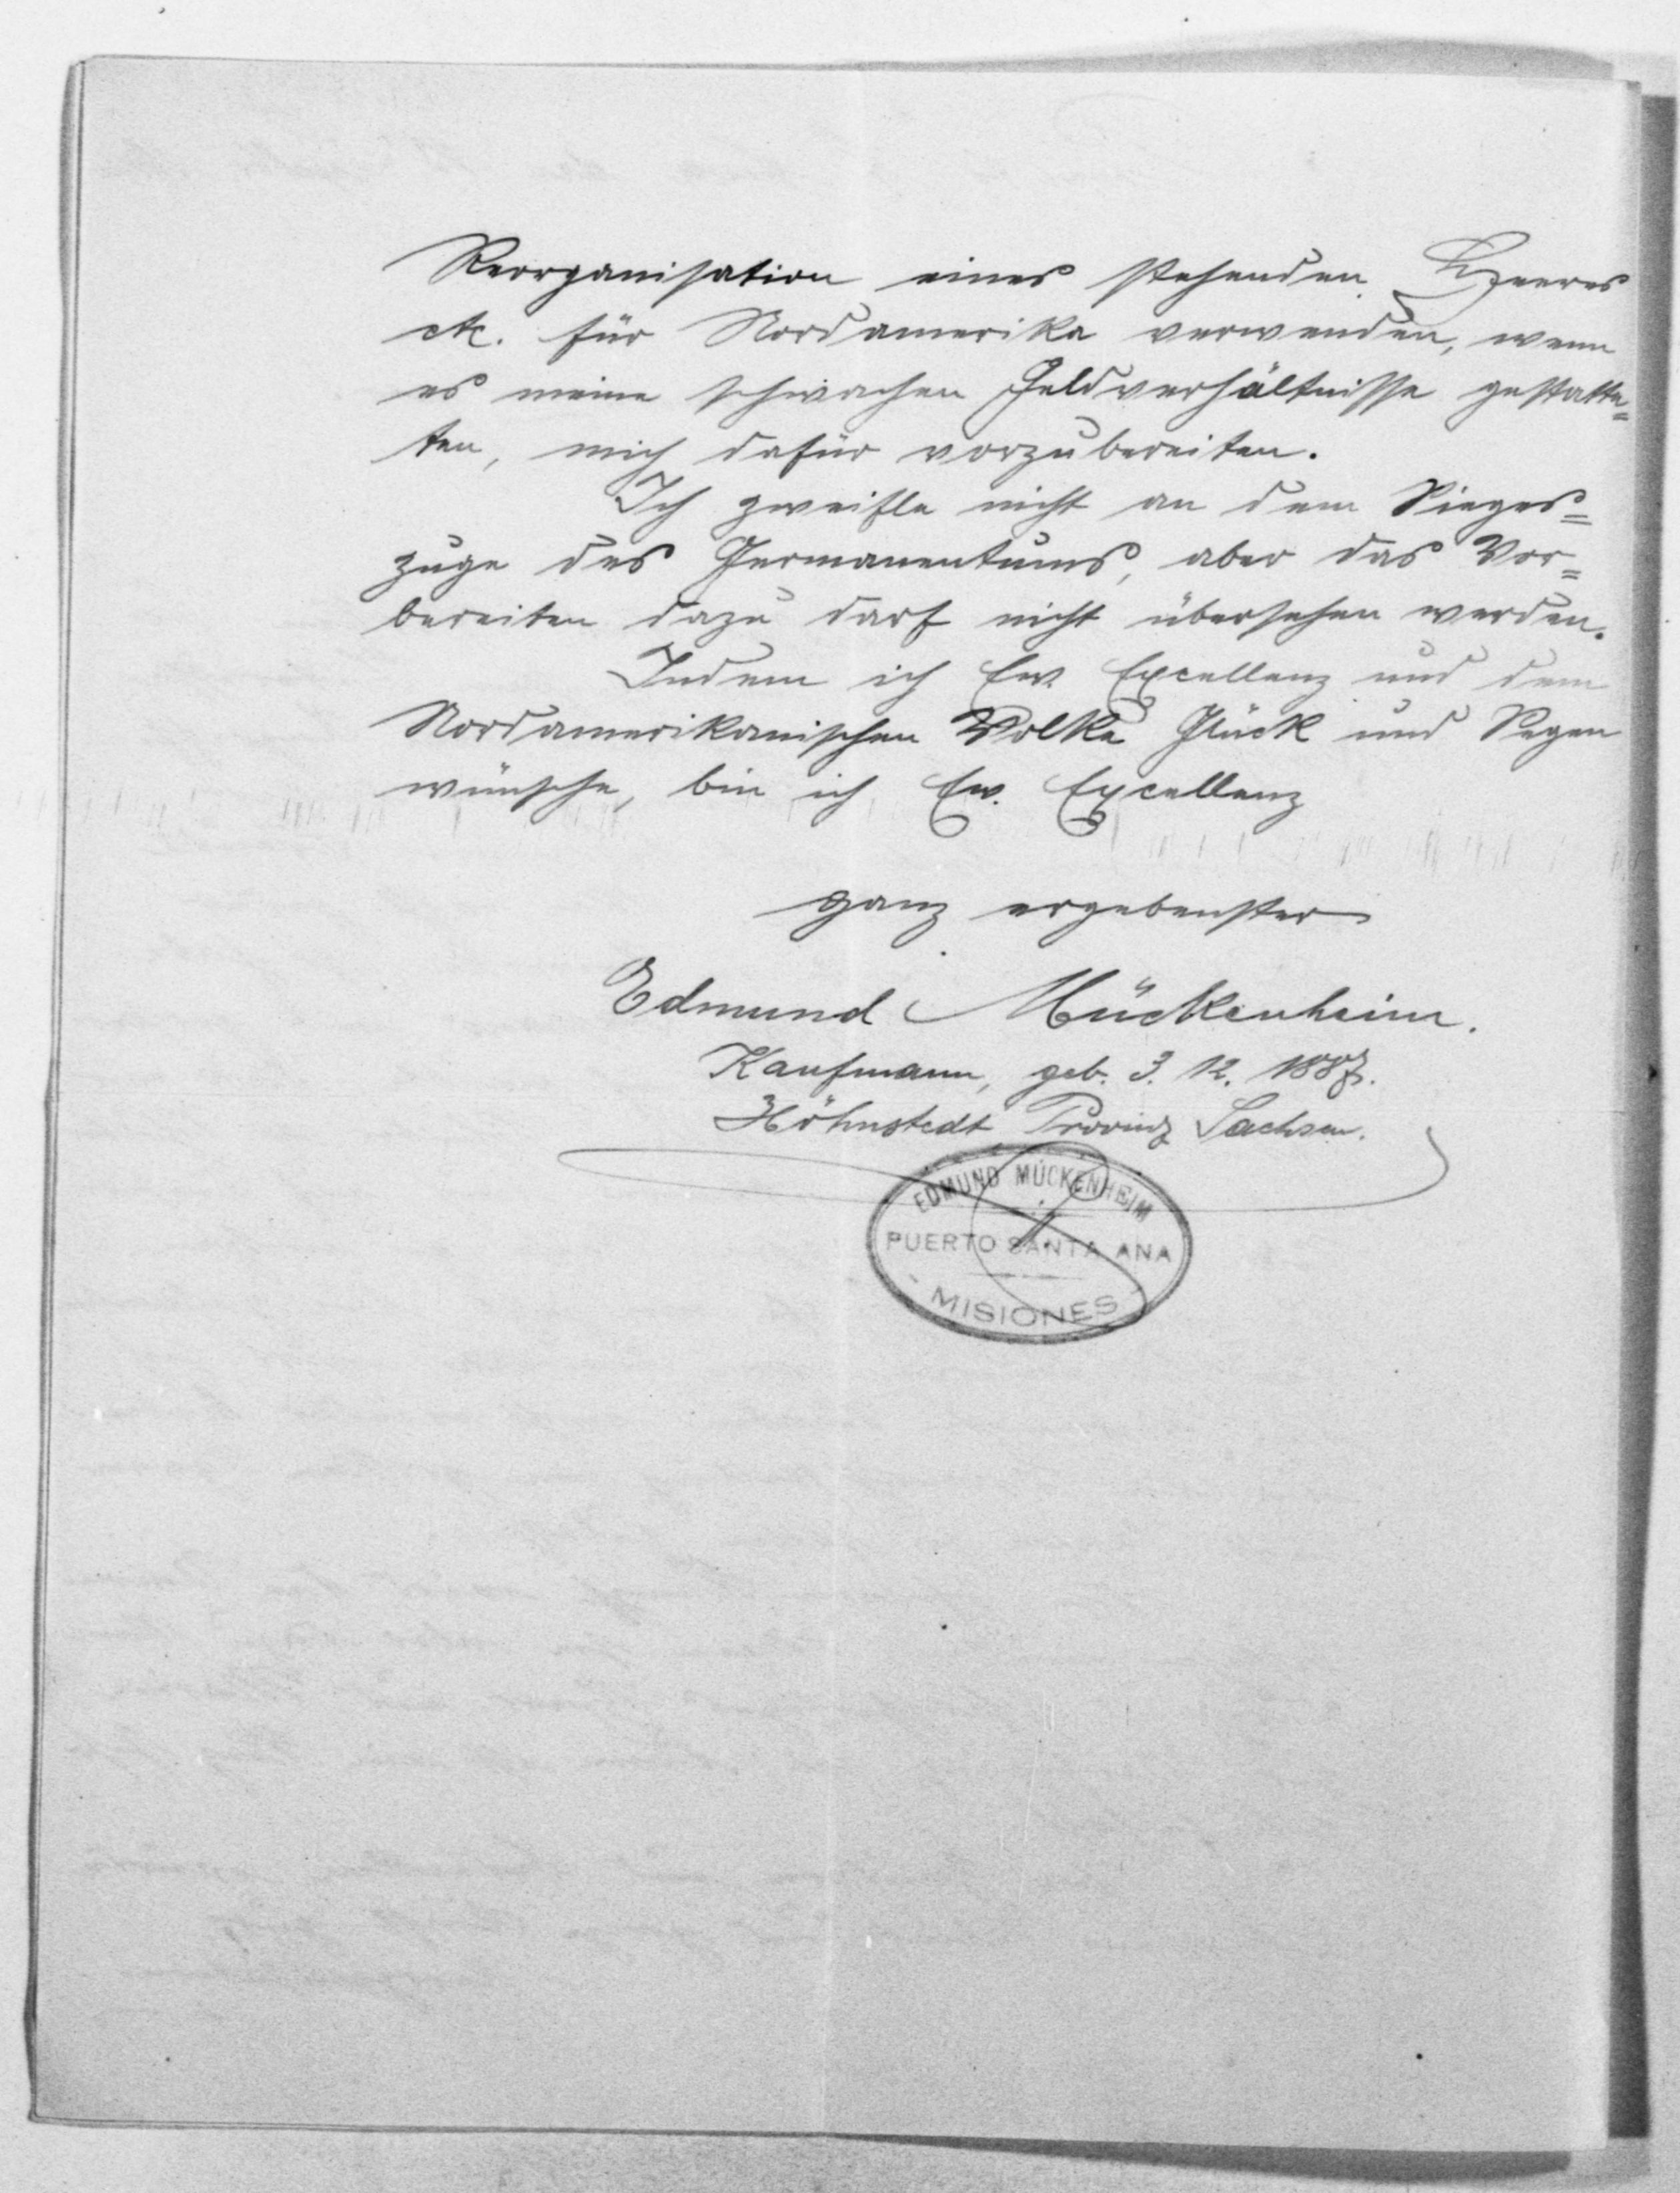 Reorganisation eines stehenden Heeres
etc. für Nordamerika verwenden, wenn
es meine schwachen Geldverhältnisse gestatte=
ten, mich dafür vorzubereiten.
Ich zweifle nicht an dem Sieges=
zuge des Germanentums, aber das Vor=
bereiten dazu darf nicht übersehen werden.
Indem ich Ew. Excellenz und dem
Nordamerikanischen Volke Glück und Segen
wünsche, bin ich Ew. Excellenz
ganz ergebenster
Edmund Mückenheim.
Kaufmann, geb. 3. 12. 1887.
Höhnstedt Provinz Sachsen.
EDMUND MÜCKENHEIM
PUERTO SANTA ANA
MISIONES